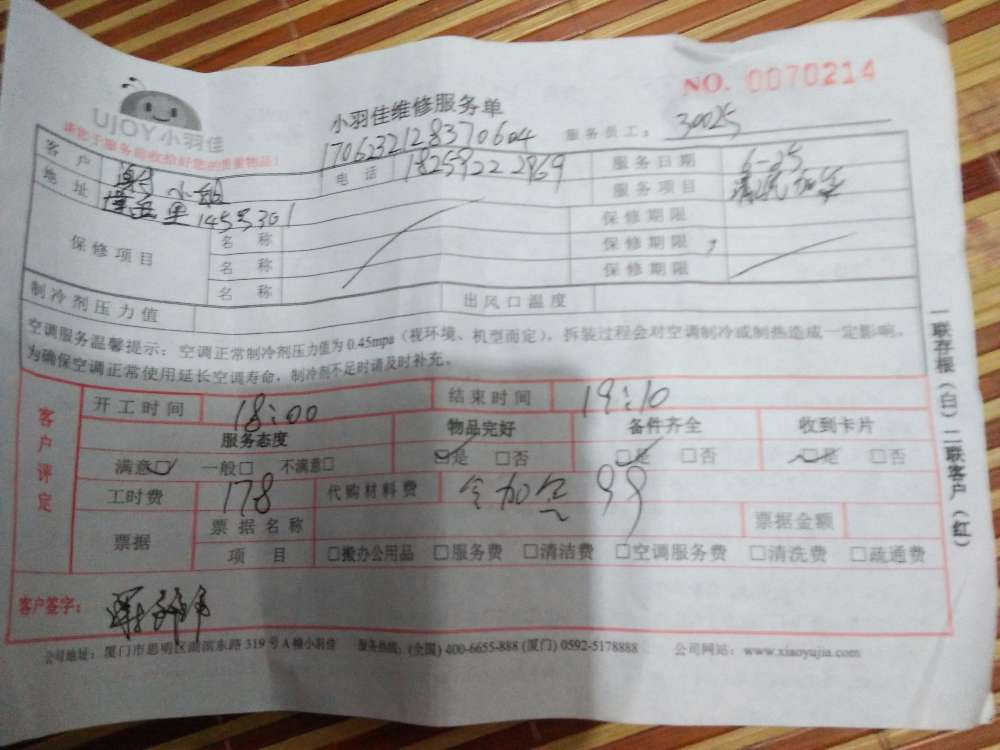 NO. 0070214
UJOY小羽佳
小羽佳维修服务单
服务员工： 30025
请您于服务前收拾好您的贵重物品！
1706232128370604
客 户 小姐 电 话 18259222969 服务日期 6-25
地 址 里145号301 服务项目 清洗加
保修项目 名 称 保修期限
名 称 保修期限
名 称 保修期限
制冷剂压力值 出风口温度
空调服务温馨提示：空调正常制冷剂压力值为 0.45mpa（视环境、机型而定），拆装过程会对空调制冷或制热造成一定影响，
为确保空调正常使用延长空调寿命，制冷剂不足时请及时补充。
客户评定
开工时间 18:00 结束时间 19:10
服务态度 物品完好 备件齐全 收到卡片
满意☑ 一般□ 不满意□ ☑是 □否 ☑是 □否 ☑是 □否
工时费 178 代购材料费 加 99
票据 票 据 名 称 票据金额
项 目 □搬办公用品 □服务费 □清洁费 □空调服务费 □清洗费 □疏通费
客户签字：
公司地址：厦门市思明区湖滨东路 319 号 A 幢小羽佳 服务热线：(全国) 400-6655-888 (厦门) 0592-5178888 公司网站：www.xiaoyujia.com
一联存根（白）二联客户（红）